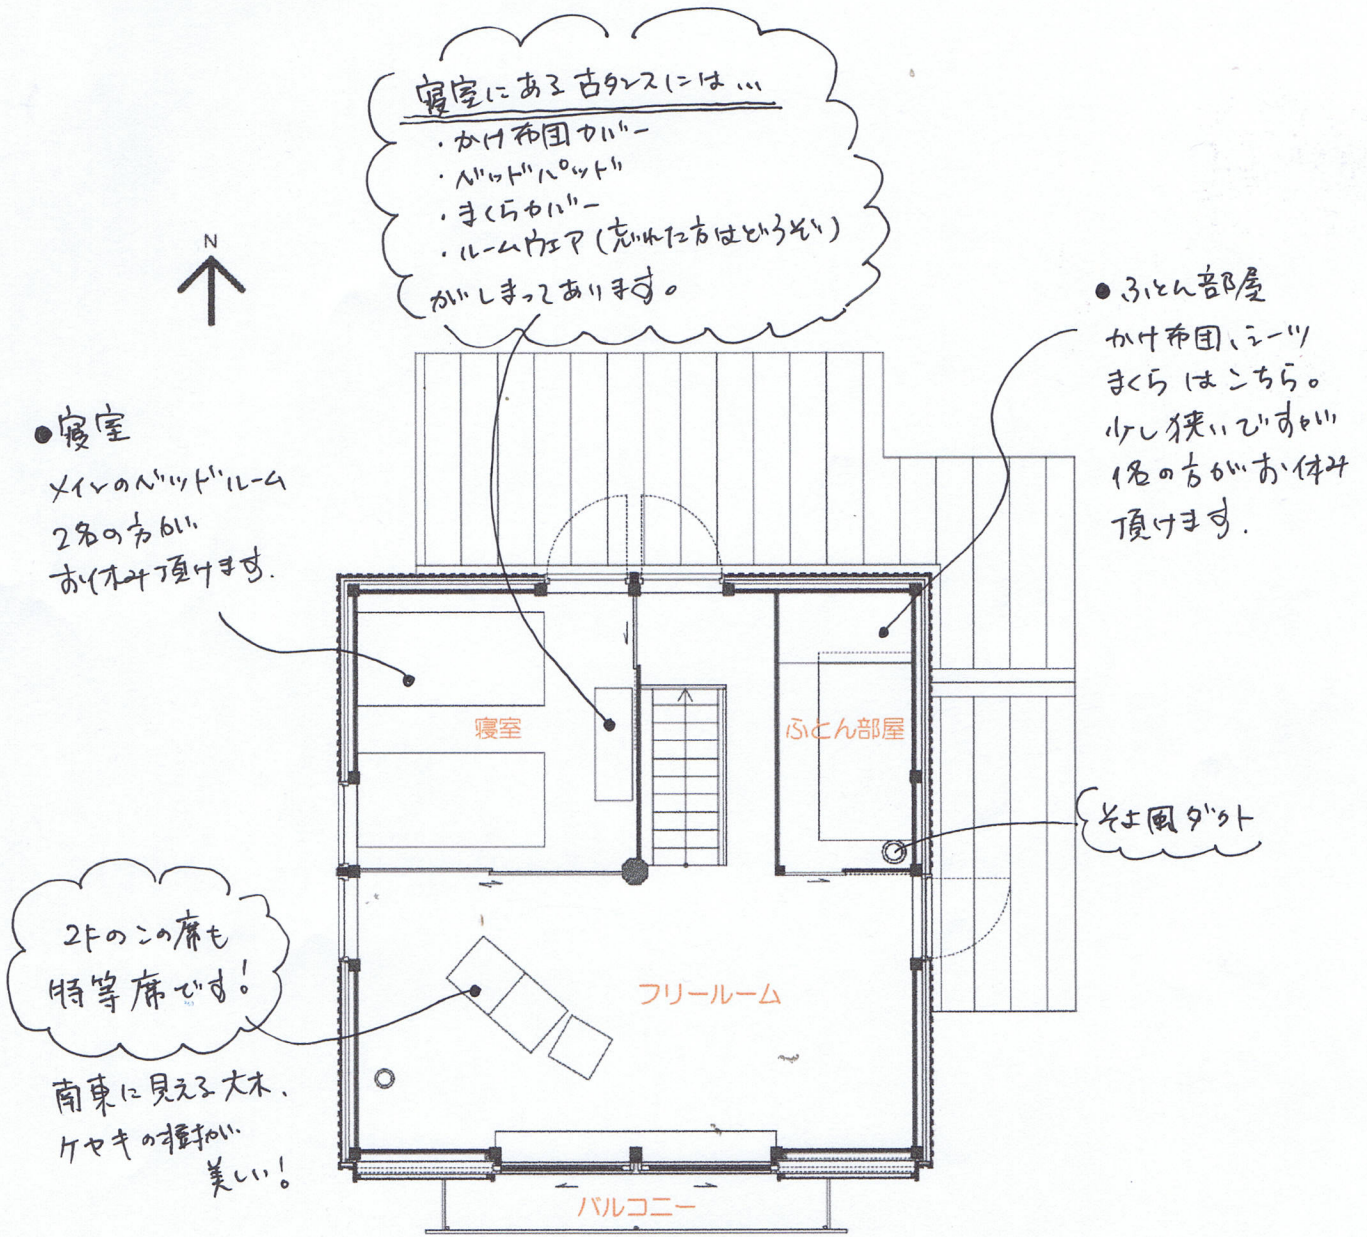 寝室にある古タンスには…
・かけ布団カバー
・ベッドパッド
・まくらカバー
・ルームウェア(忘れた方はどうぞ)
がしまってあります。
N
●ふとん部屋
かけ布団、シーツ
まくらはこちら。
少し狭いですが
1名の方がお休み
頂けます.
●寝室
メインのベッドルーム
2名の方が
お休み頂けます.
寝室
ふとん部屋
そよ風ダクト
2Fのこの席も
特等席です!
フリールーム
南東に見える大木、
ケヤキの
美しい!
バルコニー